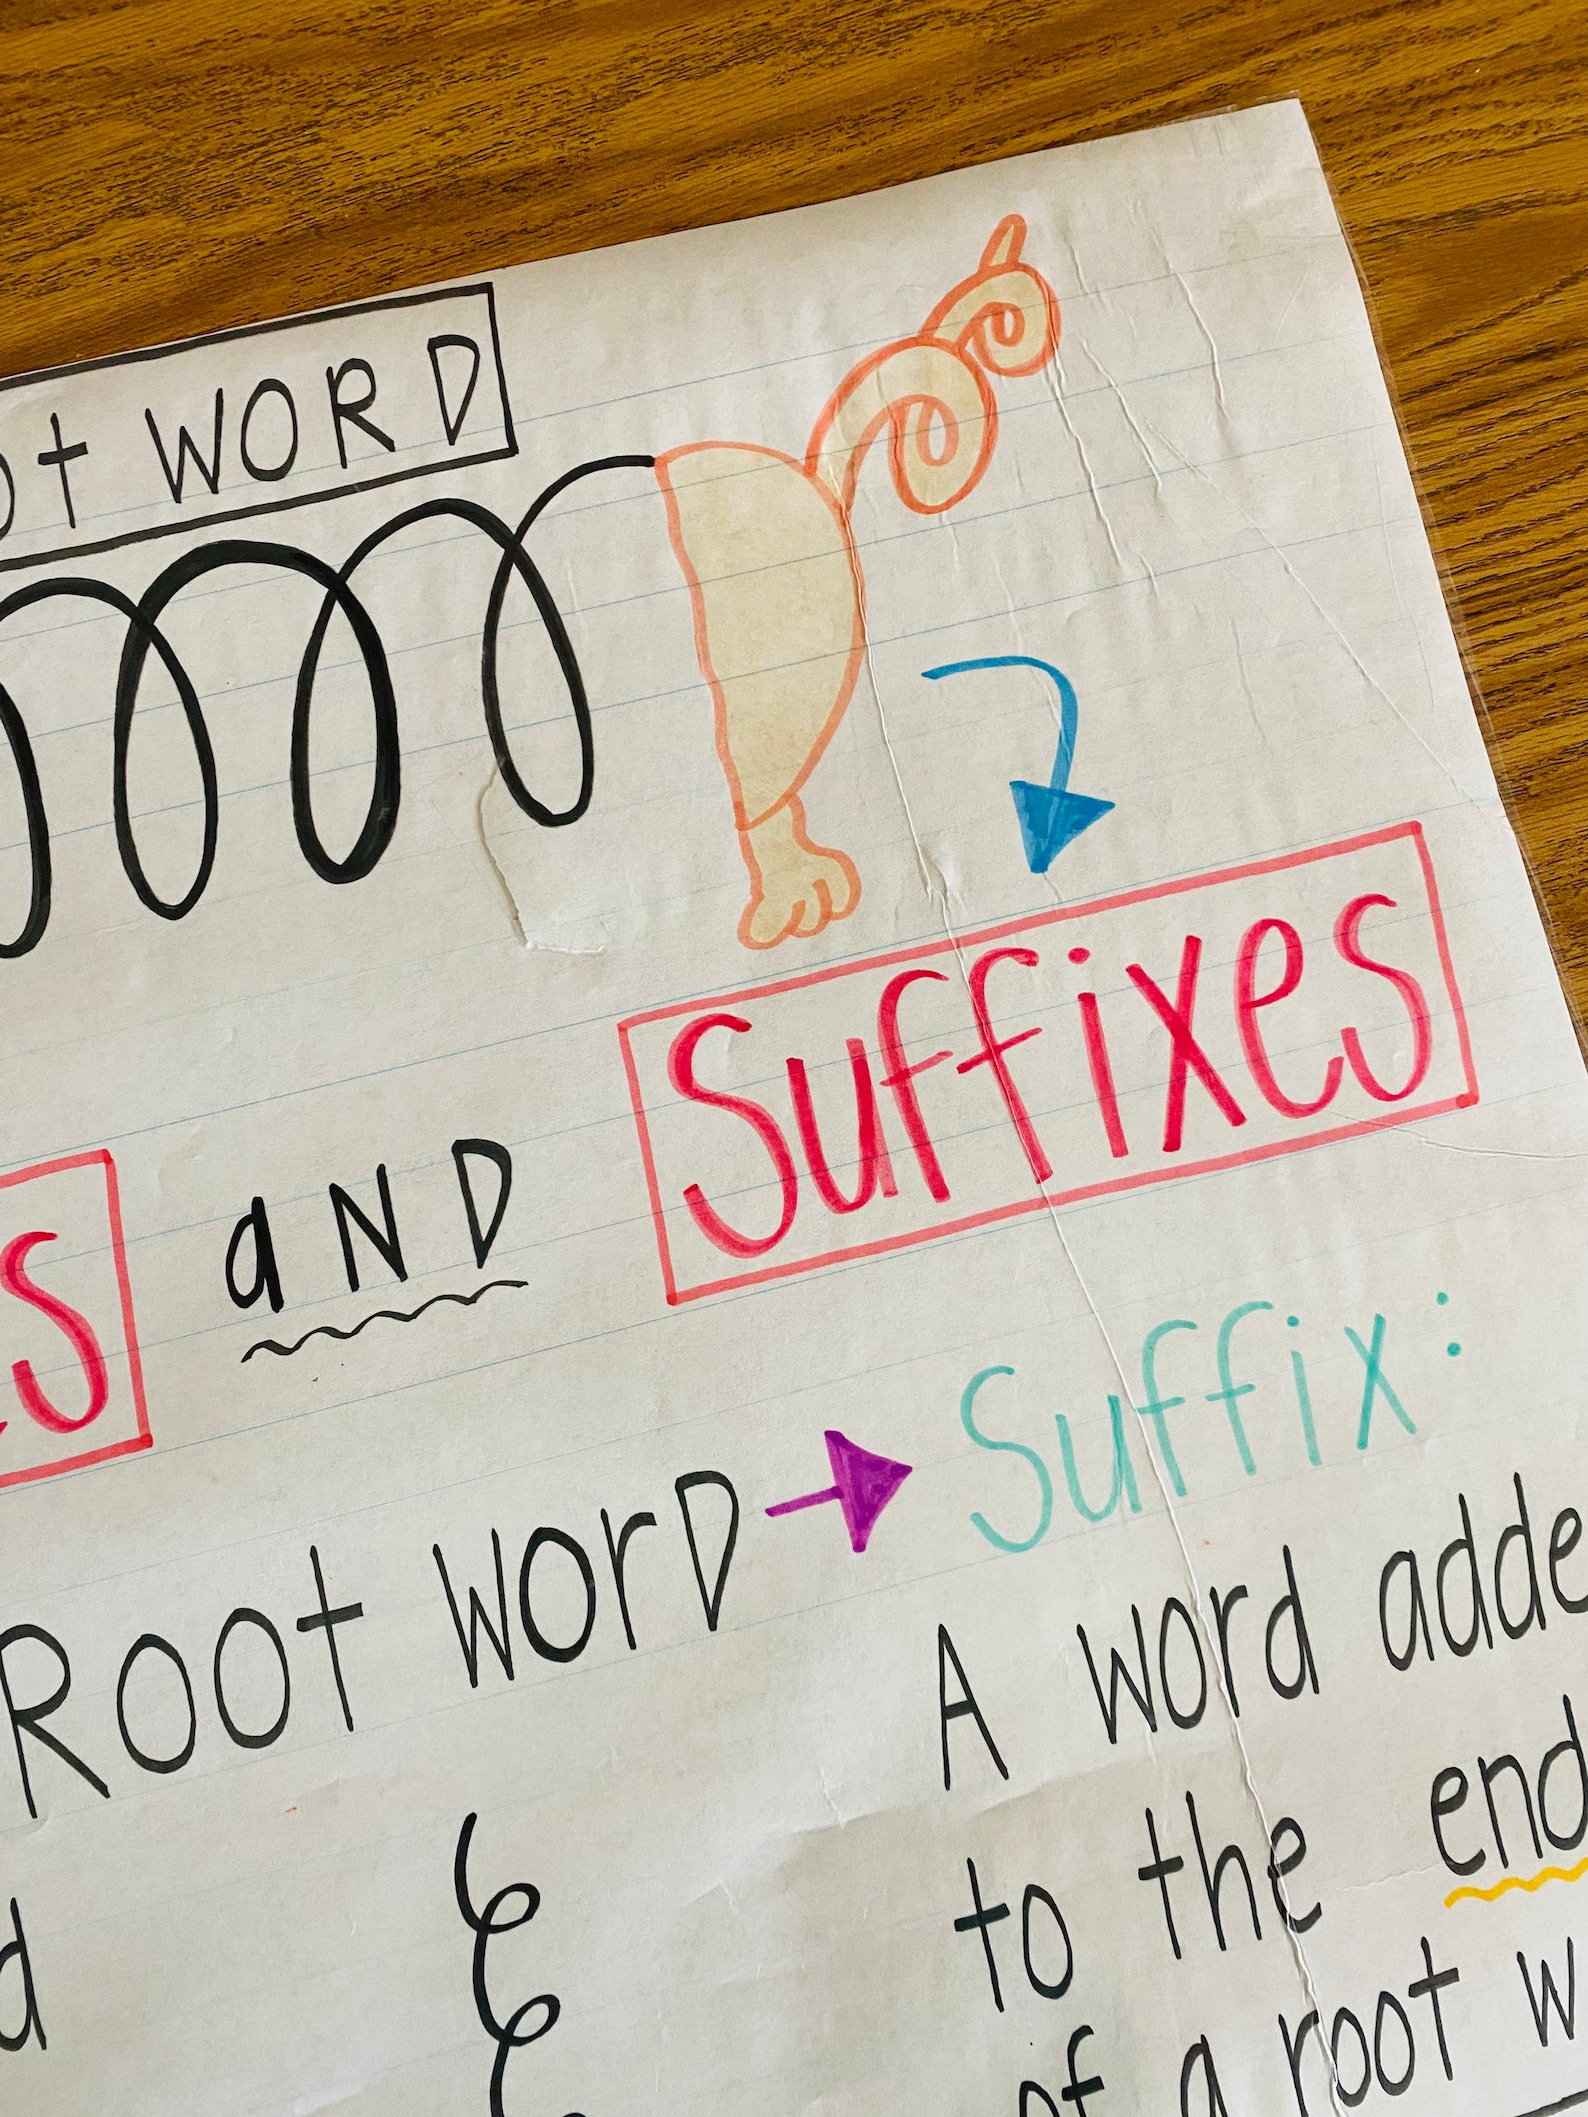 WORD
AND Suffixes
Root WorD → Suffix:
A word
to the end
of a root